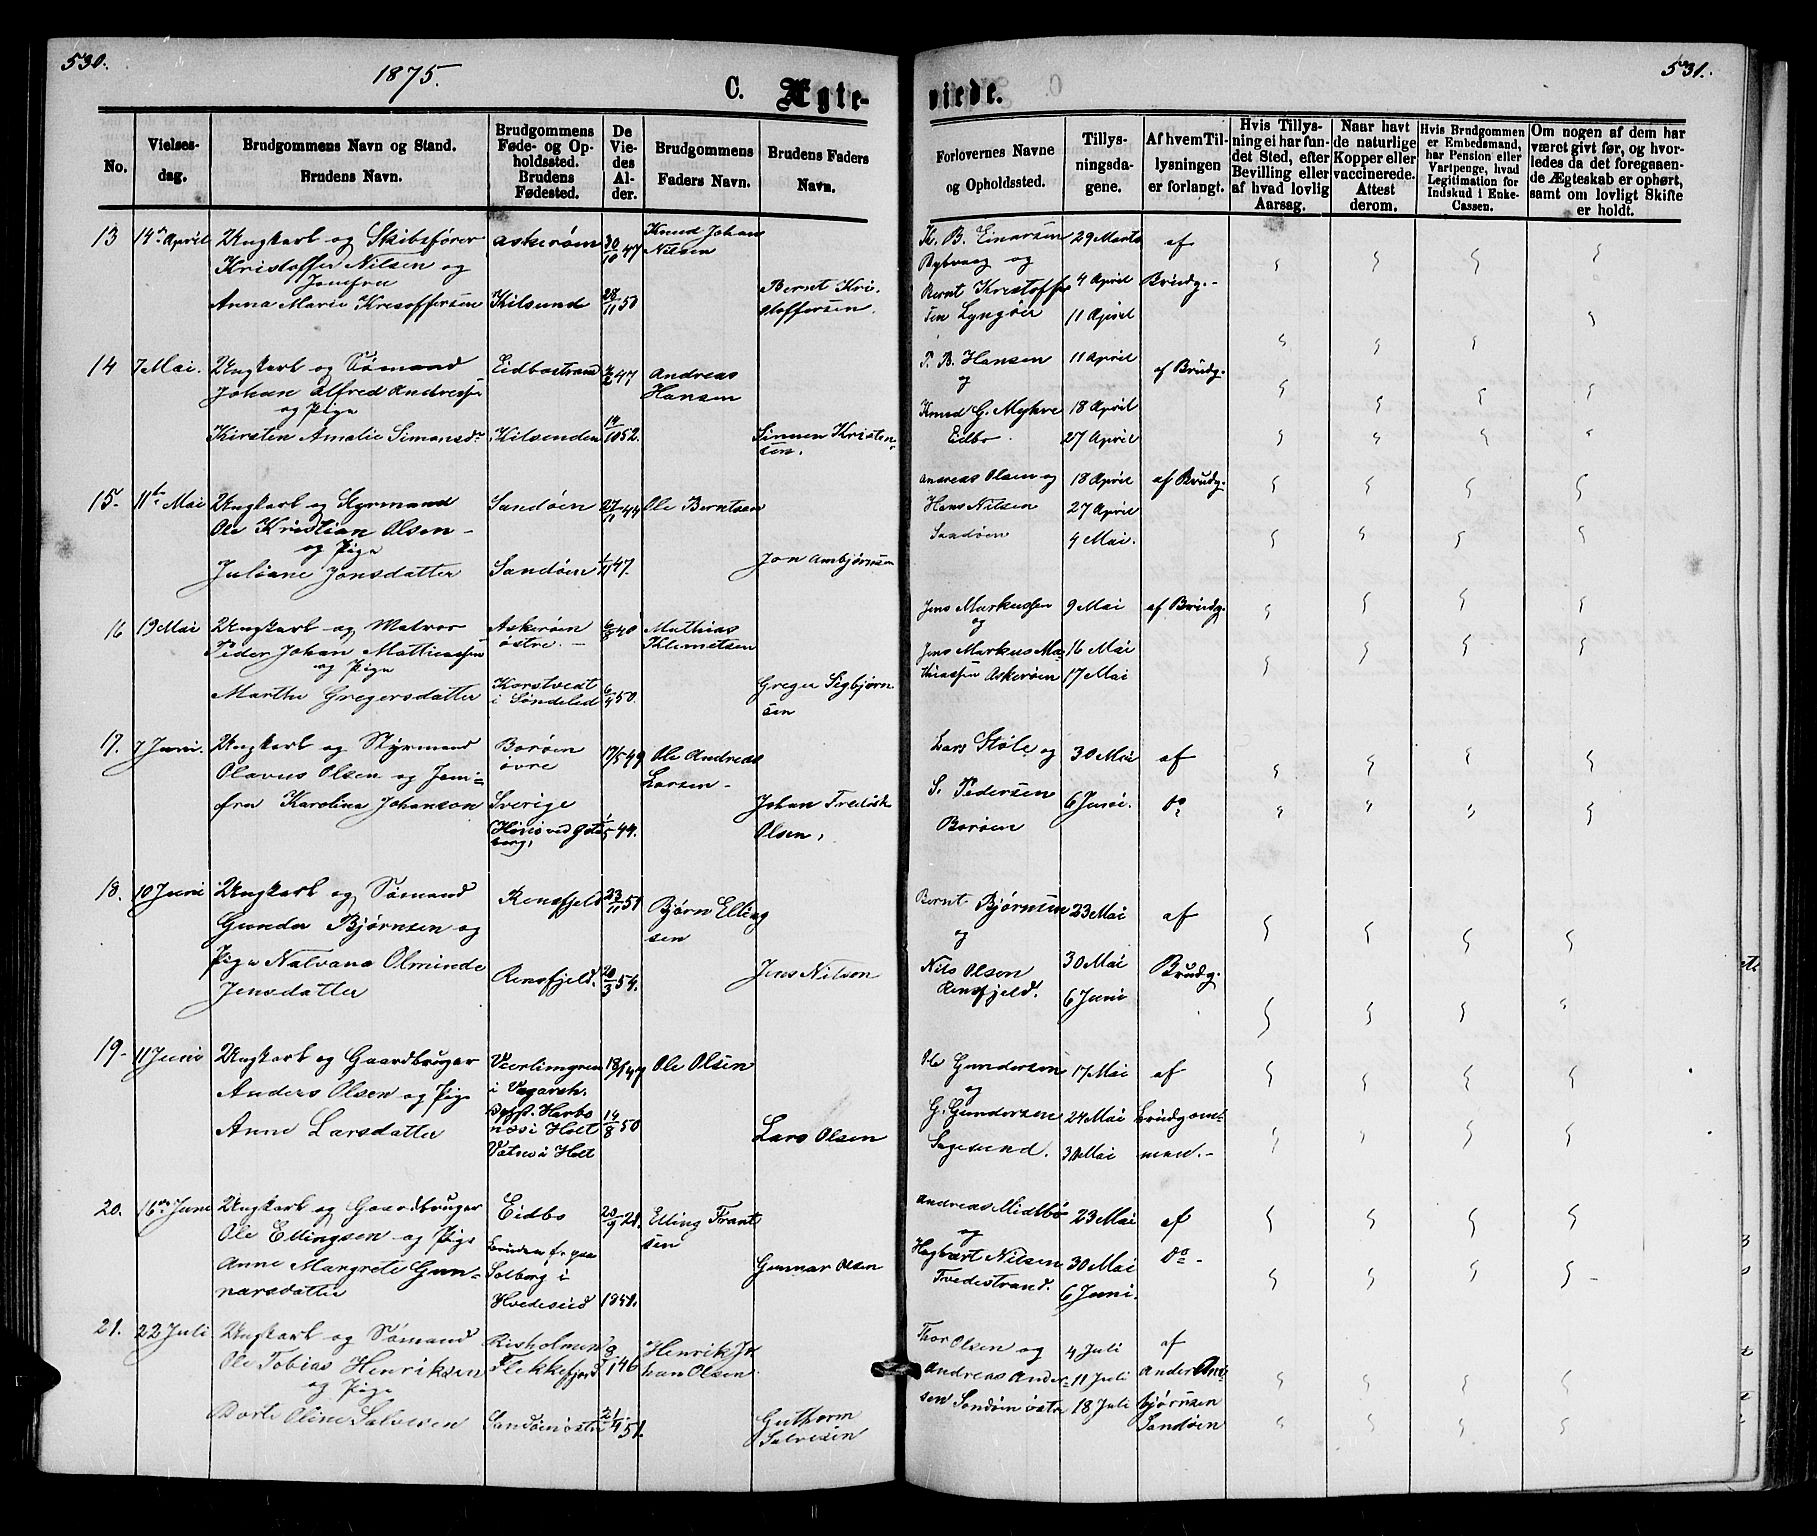 530.
1875.
C. Ægte-
No.
Vielses-
dag.
Brudgommens Navn og Stand.
Brudens Navn.
Brudgommens
Føde- og Op-
holdssted.
Brudens
Fødested.
De
Vie-
des
Al-
der.
Brudgommens
Faders Navn.
Brudens Faders
Navn.
13 14de April Ungkarl og Skibsfører Askerøen 30/10 47 Knud Johan
Kristoffer Nilsen og Nilsen
Jomfru
Anna Marie Kristoffersen Kilsund 28/11 51 Bernt Kri-
stoffersen.
14 7 Mai. Ungkarl og Sømand Eidbostrand 47 Andreas
Johan Alfred Andreassen Hansen
og Pige
Kirsten Amalie Simonsdr Kilsenden 14/10 52. Simen Kristen-
sen.
15. 11te Mai Ungkarl og Styrmand Sandøen 27/11 44 Ole Berntsen
Ole Kristian Olsen -
og Pige
Juliane Jonsdatter Sandøen 47. Jon Ambjørnsen
16 19 Mai Ungkarl og Matros Askerøen 6/8 40 Mathias
Peder Johan Mathiassen østre. - Klemetsen
og Pige
Marthe Gregersdatter Korstvedt 6/4 50. Greger Sigbjørn
i Søndeled sen
17. 7 Juni. Ungkarl og Styrmand Borøen 17/5 49 Ole Andreas
Olavus Olsen og Jom- øvre Larsen -
fru Karolina Johanson Sverige Johan Fredrik
(Hønø ved Gote 44. Olsen.
borg)
18. 10 Juni Ungkarl og Sømand Rensfjeld 23/11 51 Bjørn Elling
Gunder Bjørnsen og sen
Pige Nalvana Olminde Rensfjeld. 20/3 54. Jens Nilsen
Jensdatter
19- 11 Juni Ungkarl og Gaardbruger 18/1 47 Ole Olsen
Anders Olsen og Pige i Vegaarsh.
Opfst. Harbo
Anne Larsdatter næs i Holt 14/8 50 Lars Olsen
Vatne i Holt
20. 16de Juni Ungkarl og Gaardbruger Eidbo 20/9 21. Elling Frant
Ole Ellingsen og Pige Bruden f. paa sen
Anne Margrete Gun- Solberg i Gunnar Olsen
narsdatter Hvideseid 1851.
21. 22 Juli Ungkarl og Sømand Risholmen 46 Henrik Jo
Ole Tobias Henriksen Flekkefjord han Olsen
og Pige
Dorte Oline Salvesen Sandøen østre 51. Guthorm
Salvesen
531.
viede.
Forlovernes Navne
og Opholdssted.
Tillys-
ningsda-
gene.
Af hvem Til-
lysningen
er forlangt.
Hvis Tillys-
ning ei har fun-
det Sted, efter
Bevilling eller
af hvad lovlig
Aarsag.
Naar havt
de naturlige
Kopper eller
vaccinerede.
Attest
derom.
Hvis Brudgommen
er Embedsmand,
har Pension eller
Vartpenge, hvad
Legitimation for
Indskud i Enke-
Cassen.
Om nogen af dem har
været givt før, og hvor-
ledes da det foregaaen-
de Ægteskab er ophørt,
samt om lovligt Skifte
er holdt.
K. B. Einarsen 29 Marts af
Dybvaag og
Bernt Kristoffer 4 April Brudg. -
sen Lyngøer 11 April
P. B. Hansen 11 April af Brudg.
og
Knud G. Myhre 18 April
Eidbo. 27 April
Andreas Olsen og 18 April af Brudg.
Hans Nilsen 27 April
Sandøen 4 Mai.
Jens Markussen 9 Mai af Brudg.
og
Jens Markus Ma- 16 Mai
thiassen Askerøen 17 Mai
Lars Støle og 30 Mai af
S. Pedersen 6 Juni. do
Borøen
Bernt Bjørnsen 23 Mai af
og
Nils Olsen 30 Mai Brudg.
Rensfjeld. 6 Juni
Ole Gundersen 17 Mai af
og
G. Gundersen 24 Mai Brudgom-
Sagesund. 30 Mai men. -
Andreas Midtbø 23 Mai af
og
Hagbart Nilsen 30 Mai do -
Tvedestrand. 6 Juni.
Thor Olsen og 4 Juli af
Andreas Ander- 11 Juli Anders Am-
sen Sandøen østre 18 Juli bjørnsen
Sandøen